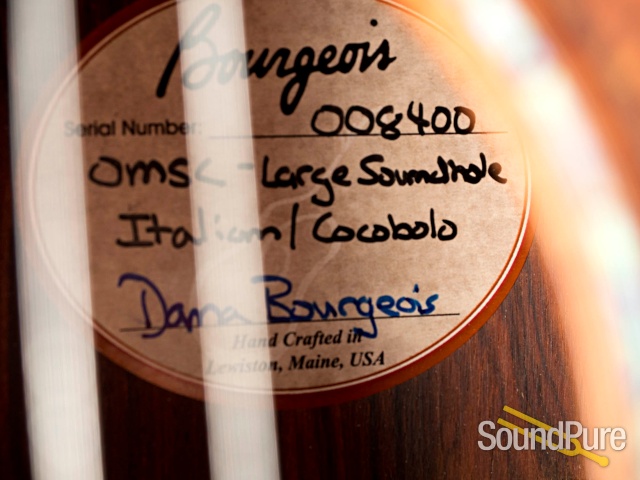 Bourgeois
Serial Number: 008400
OMSC - Large Soundhole
Italian / Cocobolo
Dana Bourgeois
Hand Crafted in
Lewiston, Maine, USA
SoundPure